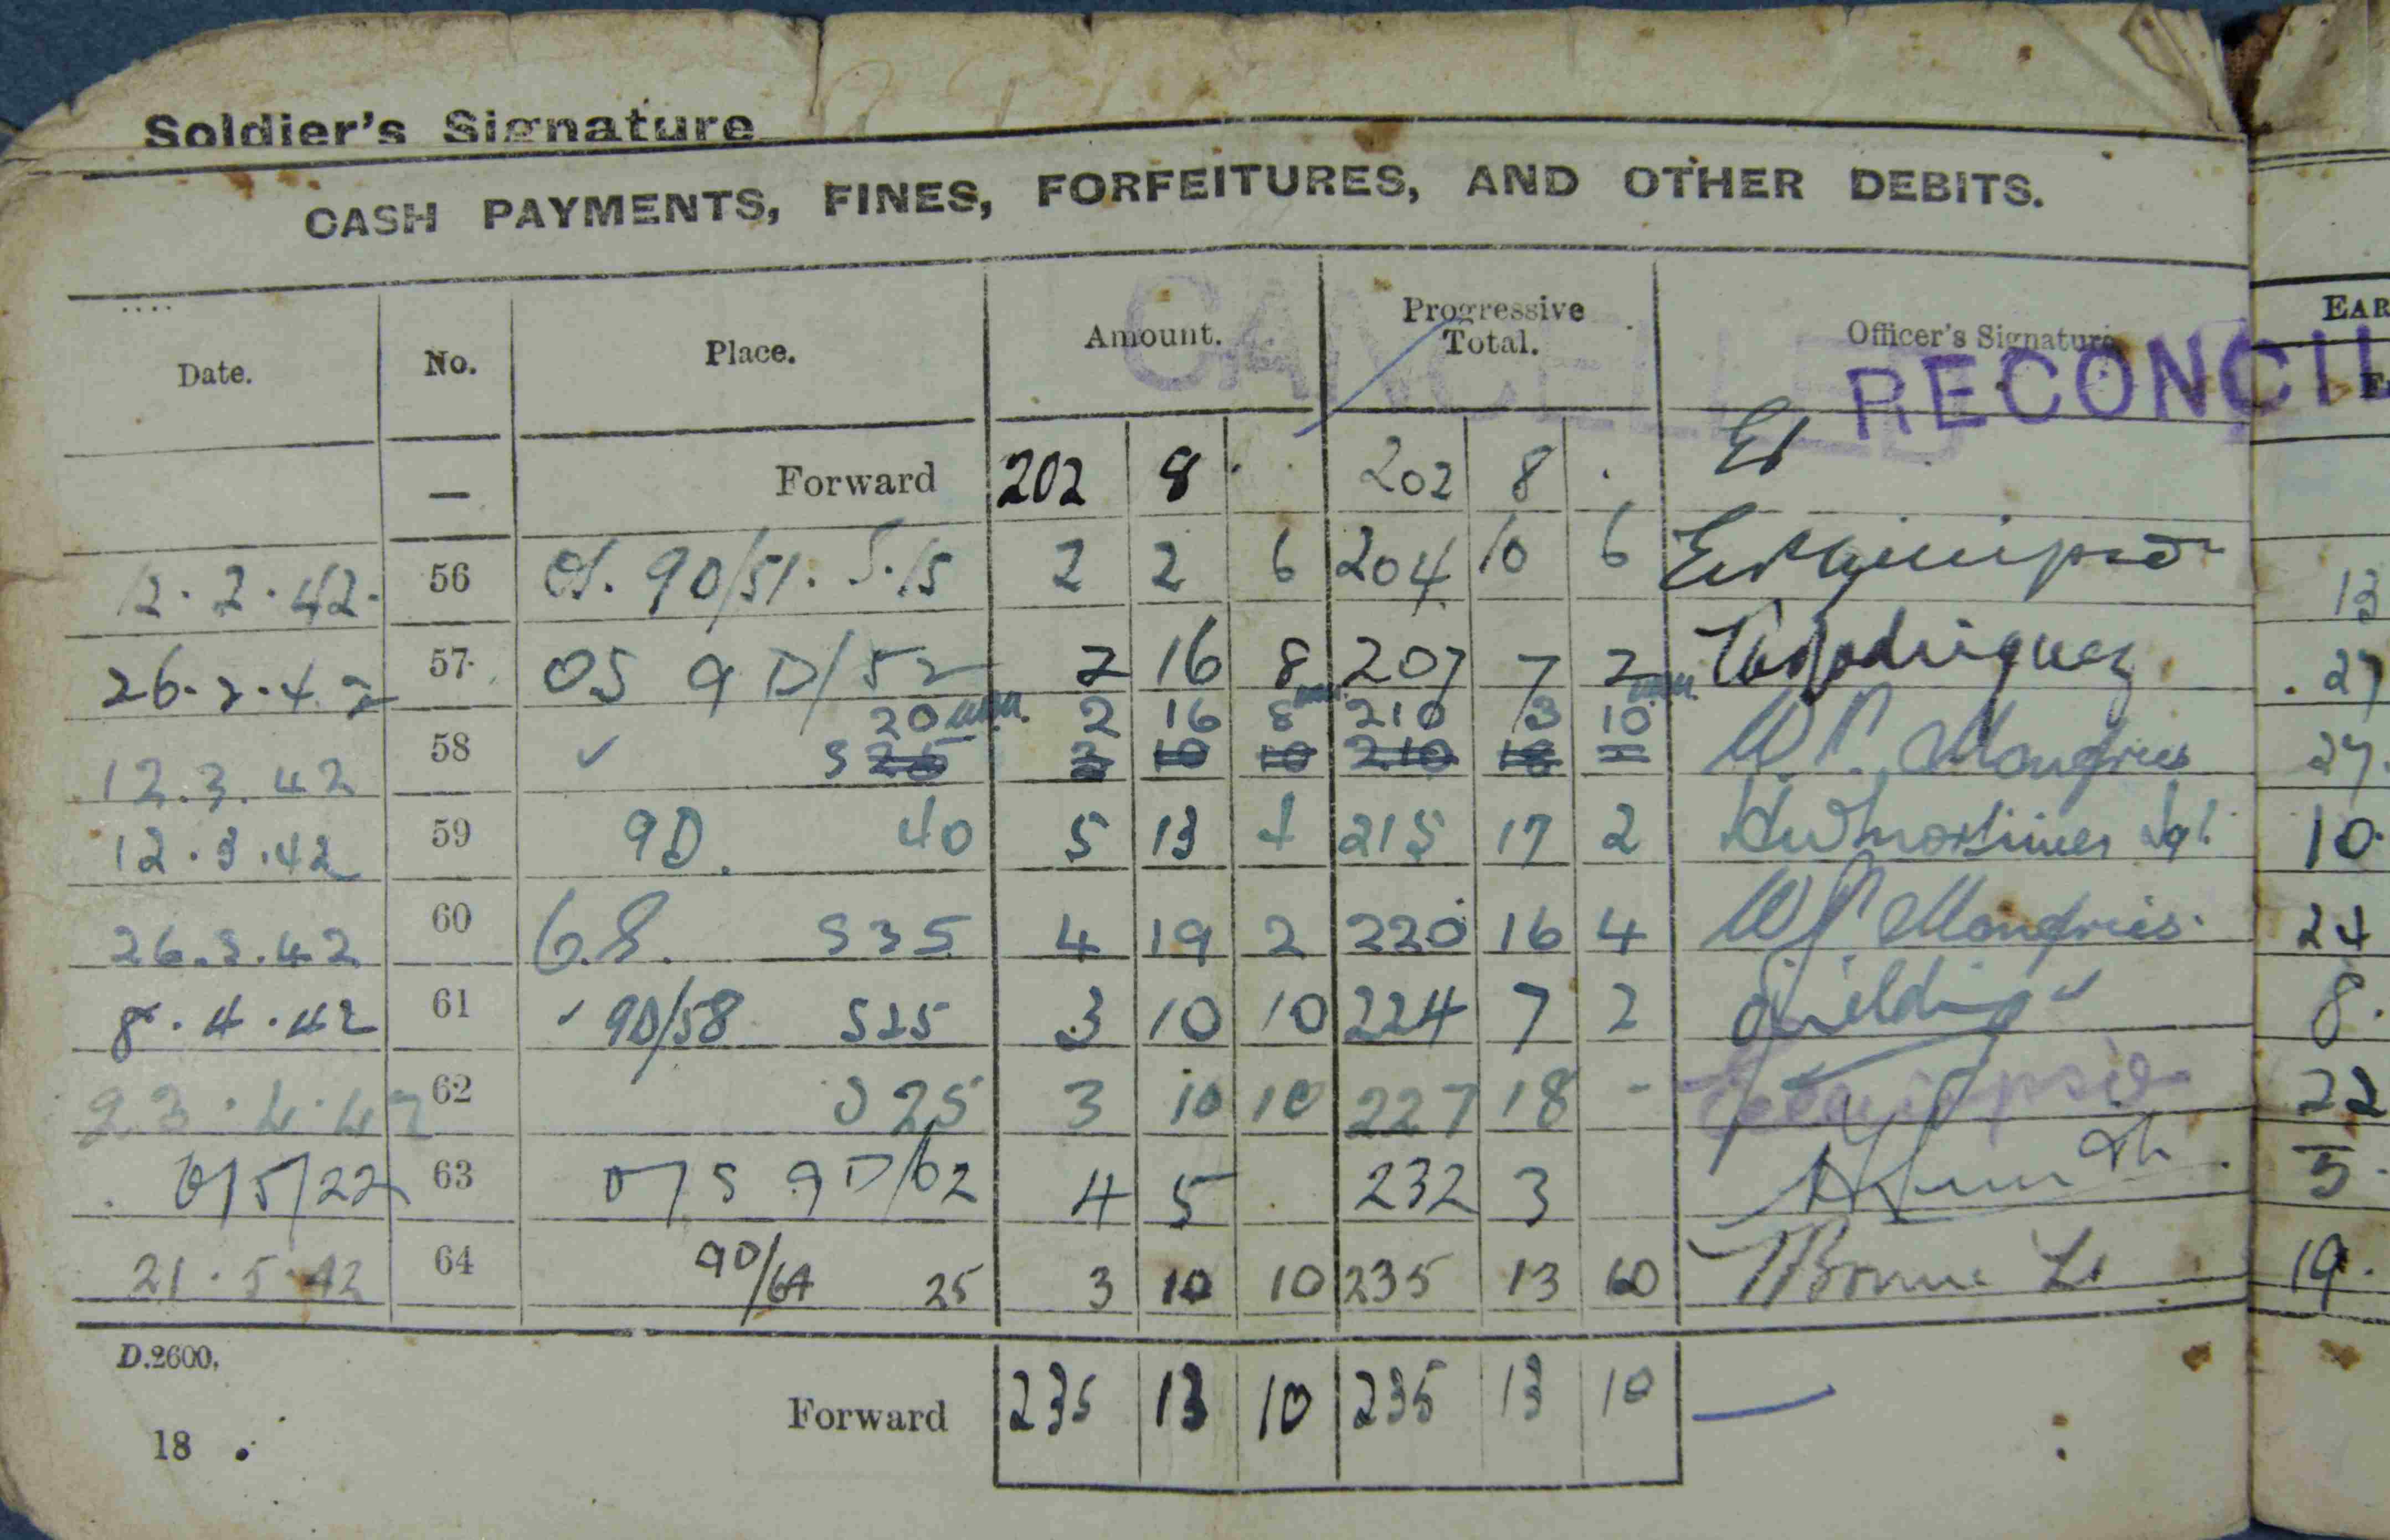 Soldier's Signature
CASH PAYMENTS, FINES, FORFEITURES, AND OTHER DEBITS.
Date. No. Place. Amount. Progressive Total. Officer's Signature
CANCELLED
RECONCIL
EAR
— Forward 202 8 . 202 8 .
12.2.42. 56 OS. 9D/51. S.15 2 2 6 204 10 6
26.2.42 57. OS 9D/52 2 16 8 207 7 2 Rodriguez
20 2 16 8 210 3 10
12.3.42 58 ✓ S 25 3 10 10 210 18 =
12.3.42 59 9D. 40 5 13 4 215 17 2
26.3.42 60 S35 4 19 2 220 16 4
8.4.42 61 ✓ 9D/58 S25 3 10 10 224 7 2
23.4.42 62 S 25 3 10 10 227 18 -
6/5/22 63 O/S 9D/62 4 5 . 232 3
21.5.42 64 9D/64 25 3 10 10 235 13 10
D.2600.
18 Forward 235 13 10 235 13 10 —
13
27
27.
10.
24
8.
22
5.
19.